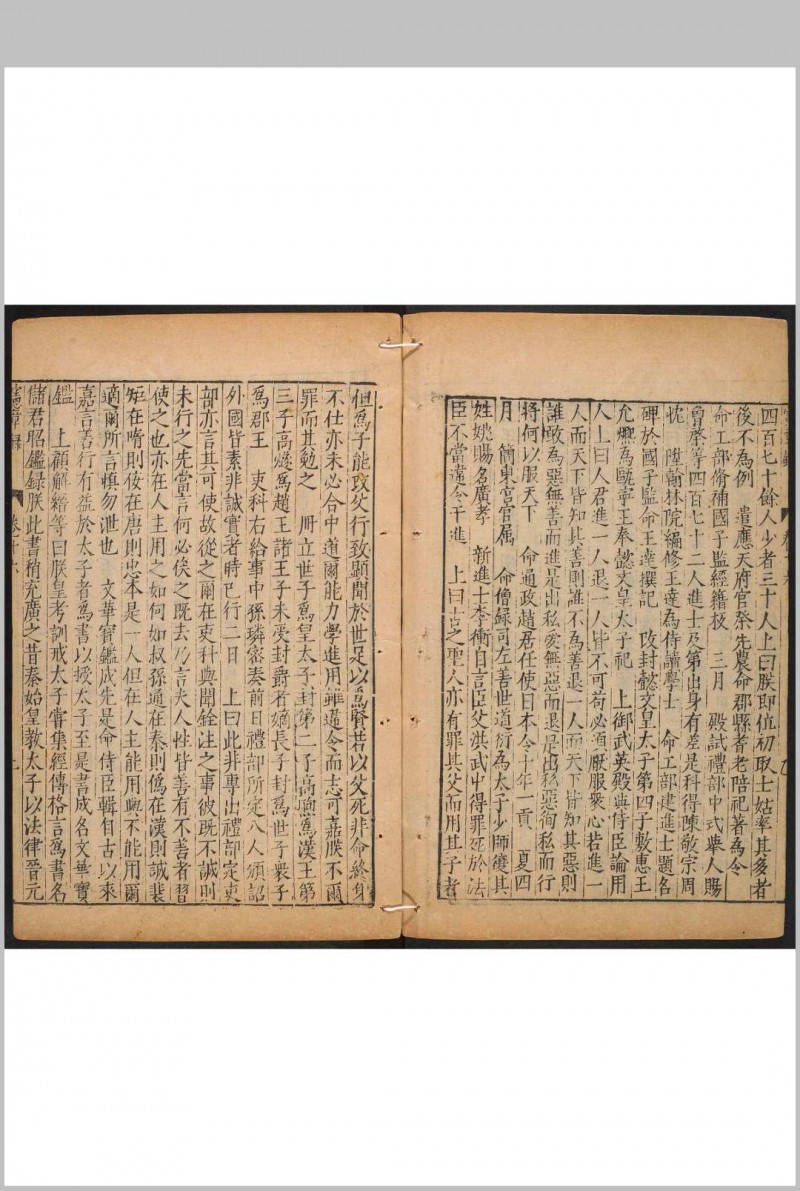 四百七十餘人少者三十人上曰朕即位初取士姑率其多者
後不為例　遣應天府官祭先農命郡縣耆老陪祀著為令
命工部脩補國子監經籍板　三月　殿試禮部中式舉人賜
曾棨等四百七十二人進士及第出身有差是科得陳敬宗周
忱　陞翰林院編修王達為侍讀學士　命工部建進士題名
碑於國子監命王達撰記　改封懿文皇太子第四子敷惠王
允𤐤為甌寧王奉懿文皇太子祀　上御武英殿與侍臣論用
人上曰人君進一人退一人皆不可苟必須厭服衆心若進一
人而天下皆知其善則誰不為善退一人而天下皆知其惡則
誰敢為惡無善而進是出私愛無惡而退是出私惡徇私而行
將何以服天下　命通政趙居任使日本令十年一貢　夏四
月　簡東宮官屬　命僧録司左善世道衍為太子少師復其
姓姚賜名廣孝　新進士李衡自言臣父洪武中得罪死於法
臣不當違令干進　上曰古之聖人亦有罪其父而用其子者
但爲子能改父行致顯聞於世足以爲賢若以父死非命終身
不仕亦未必合中道爾能力學進用雖違令而志可嘉朕不爾
罪而其勉之　冊立世子爲皇太子封第二子高煦爲漢王第
三子高燧爲趙王諸王子未受封爵者嫡長子封爲世子衆子
爲郡王　吏科右給事中孫璘密奏前日禮部所定八人頒詔
外國皆素非誠實者時已行二日　上曰此非專出禮部定吏
部亦言其可使故從之爾在吏科與聞銓注之事彼既不誠則
未行之先當言何必俟之既去乃言夫人性皆善有不善者習
使之也亦在人主用之如何如叔孫通在秦則僞在漢則誠裴
矩在隋則佞在唐則忠本是一人但在人主能用與不能用爾
適爾所言慎勿泄也　文華寶鑑成先是命侍臣輯自古以來
嘉言善行有益於太子者爲書以授太子至是書成名文華寶
鑑　上顧解縉等曰朕皇考訓戒太子嘗集經傳格言爲書名
儲君昭鑑録朕此書稍充廣之昔秦始皇教太子以法律晉元